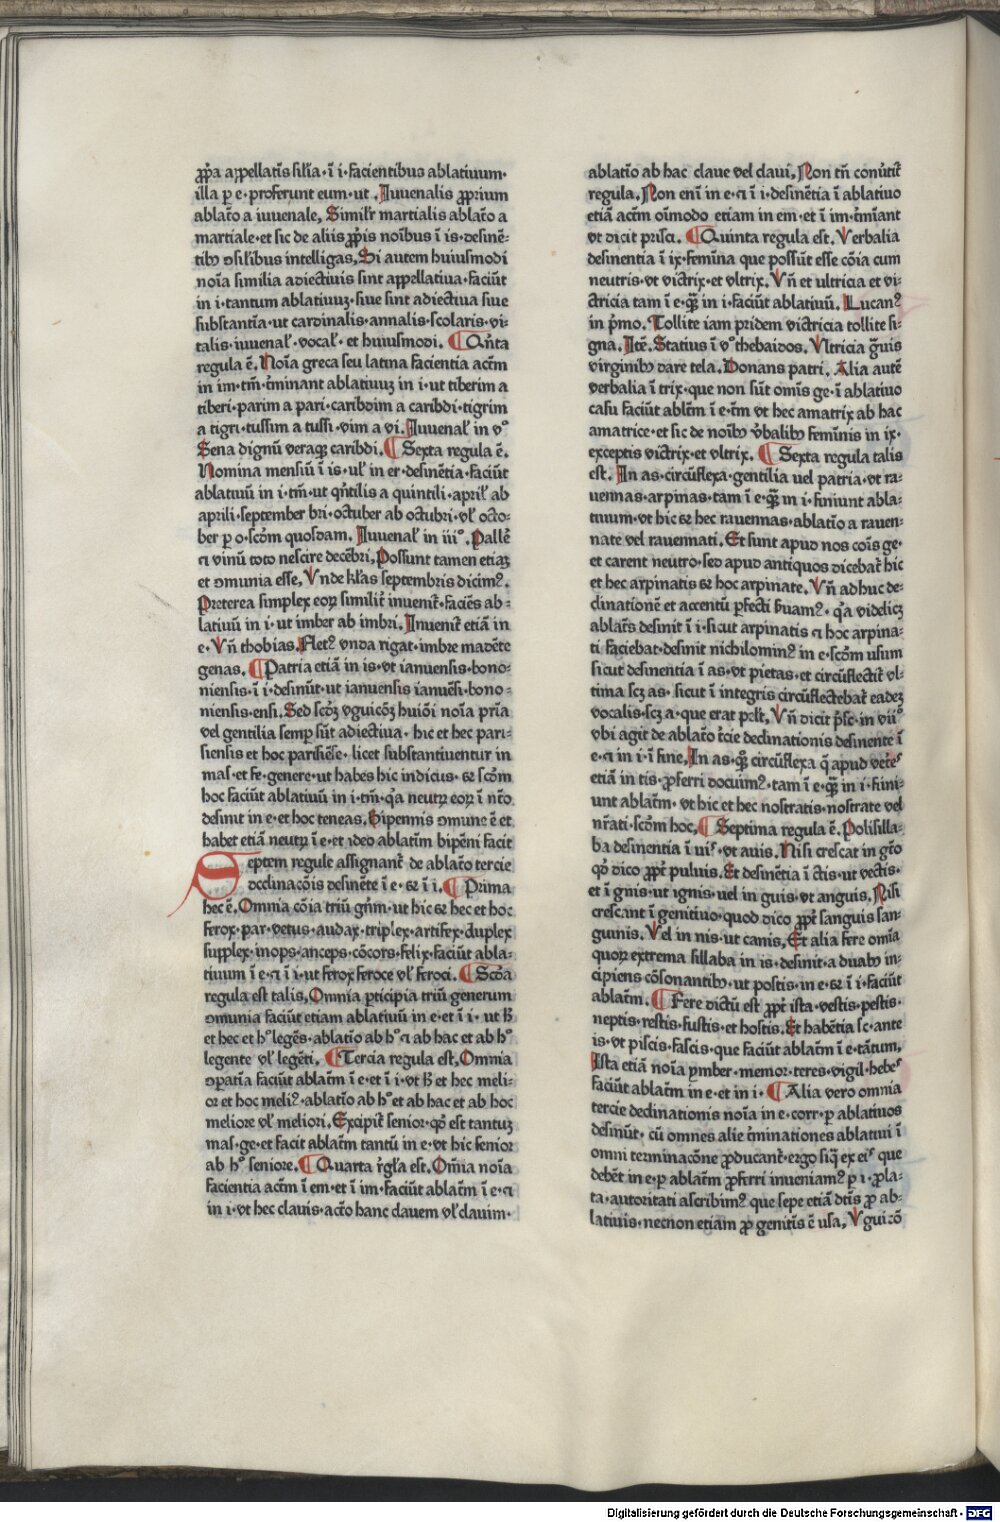 ꝓpͥa appellatīs silīa · ī i · facientibus ablatiuum ·
illa p e · proferunt eum · ut . Juuenalis ꝓprium
ablatō a iuuenale, Similr̄ martialis ablatō a
martiale · et sic de aliis ꝓpͥis noībus ī is · desinē-
tibꝫ ↄsilibus intelligas, Si autem huiusmodi
noīa similia adiectiuis sint appellatiua · faciūt
in i · tantum ablatiuuꝫ · siue sint adiectiua siue
substantīa · ut cardinalis · annalis · scolaris · vi-
talis · iuuenal̄ · vocal̄ · et huiusmodi . ¶ Qn̄ta
regula ē . Noīa greca seu latina facientia actm̄
in im · tm̄ · t̄minant ablatiuuꝫ in i · ut tiberim a
tiberi · parim a pari · caribdim a caribdi · tigrim
a tigri · tussim a tussi · vim a vi . Juuenal̄ in vͦ
Sena dignū veraqꝫ caribdi . ¶ Sexta regula ē .
Nomina mensiū ī is · ul̓ in er · desinētia · faciūt
ablatiuū in i · tm̄ · ut qn̄tilis a quintili · april̄ ab
aprili · september bri · octuber ab octubri · vl̓ octo-
ber p o · scd̓om quosdam . Juuenal̄ in iiiͦ . Pallē
ci vinū toto nescire decēbri, Possunt tamen etiaꝫ
et ↄmunia esse, Vnde kl̄as septembris dicimꝰ .
Preterea simplex eoꝝ similit̄ inuenit̄ · faciēs ab-
latiuū in i · ut imber ab imbri . Inuenit̄ etiā in
e · Vn̄ thobias . Fletꝰ vnda rigat · imbre madēte
genas . ¶ Patria etiā in is · vt ianuensis · bono-
niensis · ī i · desinūt · ut ianuensis ianuēsi · bono-
niensis · ensi . Sed scd̓ꝫ vguicōꝫ huiōi noīa pr̄ia
vel gentilia semp sūt adiectiua · hic et hec pari-
siensis et hoc parisiēse · licet substantiuentur in
mas · et fe · genere · ut habes hic indicus · ⁊ scd̓om
hoc faciūt ablatiuū in i · tm̄ · qͥa neutꝝ eoꝝ ī nt̄o
desinit in e · et hoc teneas . Bipennis ↄmune ē et
habet etiā neutꝝ ī e · et ideo ablatīm bipēni facit
Septem regule assignant̄ de ablatō tercie
declinacōis desinēte ī e · ⁊ ī i . ¶ Prima
hec ē . Omnia cōia triū gn̄m · ut hic ⁊ hec et hoc
ferox · par · vetus · audax · triplex · artifex · duplex
supplex · inops · anceps · cōcors · felix · faciūt abla-
tiuum ī e · ⁊ ī i · ut ferox feroce vl̓ feroci . ¶ Scd̓a
regula est talis, Omnia pticipia triū generum
ↄmunia faciūt etiam ablatiuū in e · et ī i · ut h̄
et hec et hͦ legēs · ablatīo ab hͦ ⁊ ab hac et ab hͦ
legente vl̓ legēti . ¶ Tercia regula est, Omnia
ↄpatīa faciūt ablatm̄ ī e · et ī i · vt h̄ et hec meli-
or et hoc meliꝰ · ablatīo ab hͦ et ab hac et ab hoc
meliore vl̓ meliori . Excipit̄ senior · qd̓ est tantuꝫ
mas · ge · et facit ablatm̄ tantū in e · vt hic senior
ab hͦ seniore . ¶ Quarta rl̄ga est . Om̄ia noīa
facientia actm̄ ī em · et ī im · faciūt ablatm̄ ī e · ⁊
in i · vt hec clauis · actō hanc clauem vl̓ clauim ·
ablatīo ab hac claue vel claui, Non tn̄ conu̓tit̄
regula . Non eni̅ in e · ⁊ ī i · desinētia ī ablatiuo
etiā actm̄ oīmodo etiam in em · et ī im · t̄mīant
vt dicit prisci . ¶ Quinta regula est . Verbalia
desinentia ī ix · femīna que possūt esse cōia cum
neutris · vt victrix · et vltrix . Vn̄ et ultricia et vi-
ctricia tam ī e · qꝫ̄ in i · faciūt ablatiuū . Lucanꝰ
in pͥmo . Tollite iam pridem victricia tollite si-
gna . Itē . Statius ī vͦ thebaidos . Vltricia gͣuis
virginibꝫ dare tela . Donans patri . Alia autē
verbalia ī trix · que non sūt om̄is ge · ī ablatiuo
casu faciūt ablīm ī e · tm̄ vt hec amatrix ab hac
amatrice · et sic de noībꝫ vb̓alibꝫ femīnis in ix ·
exceptis victrix · et vltrix . ¶ Sexta regula talis
est . In as · circūflexa · gentilia uel patria · vt ra-
uennas · arpinas · tam ī e · qꝫ̄ in i · finiunt abla-
tiuum · vt hic ⁊ hec rauennas · ablatīo a rauen-
nate vel rauennati . Et sunt apud nos cōis ge ·
et carent neutro · sed apud antiquos dicebat̄ hic
et hec arpinatis ⁊ hoc arpinate . Vn̄ adhuc de-
clinationē et accentū pfecti ẜuamꝰ · qͥa videlicꝫ
ablatīs desinit ī i · sicut arpinatis ⁊ hoc arpina-
ti faciebat · desinit nichilominꝰ in e · scd̓om usum
sicut desinentia ī as · vt pietas · et circūflectit̄ vl-
tima scꝫ as · sicut ī integris circūflectebat̄ eadeꝫ
vocalis · scꝫ a · que erat pēlt̄, Vn̄ dicit pͥsc · in viiͦ
vbi agit de ablatō t̄cie declinationis desinente ī
e · ⁊ in i · ī fine, In as · qꝫ̄ circūflexa q̄ apud vet̓eˢ
etiā in tis · ꝓferri docuimꝰ · tam ī e · qꝫ̄ in i · fini-
unt ablatm̄ · vt hic et hec nostratis · nostrate vel
nr̄ati · scd̓om hoc, ¶ Septima regula ē . Polisilla-
ba desinentia ī uiˢ · vt auis . Nisi crescat in gt̄o
qd̓ dico ꝓpt̄ puluis . Et desinētia ī ctis · ut vectis ·
et ī gnis · ut ignis · uel in guis · vt anguis, Nisi
crescant ī genitiuo · quod dico ꝓpt̄ sanguis san-
guinis . Vel in nis · ut canis, Et alia fere om̄ia
quoꝝ extrema sillaba in is · desinit · a duabꝫ in-
cipiens cōsonantibꝫ · ut postis · in e · ⁊ ī i · faciūt
ablatm̄ . ¶ Fere dictū est ꝓpt̄ ista · vestis · pestis ·
neptis · restis · fustis · et hostis . Et habētia sc · ante
is · vt piscis · fascis · que faciūt ablatm̄ ī e · tātum,
Ista etiā noīa ymber · memor · teres · vigil · hebeˢ
faciūt ablatm̄ in e · et in i · ¶ Alia vero omnia
tercie declinationis noīa in e · corr · p ablatiuos
desinūt · cū omnes alie t̄minationes ablatiui ī
omni terminacōne ꝓducant̄ · ergo siqͥ ex eiˢ que
debēt in e · p ablatm̄ ꝓferri inueniamꝰ p i · ꝓla-
ta · autoritati ascribimꝰ que sepe etiā dtīs ꝓ ab-
latiuis · necnon etiam ꝓ genitīs ē usa, Vguicō
Digitalisierung gefördert durch die Deutsche Forschungsgemeinschaft - DFG